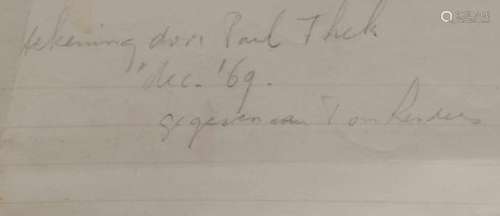 tekening door Paul Thek
dec. '69.
gegeven aan Tom